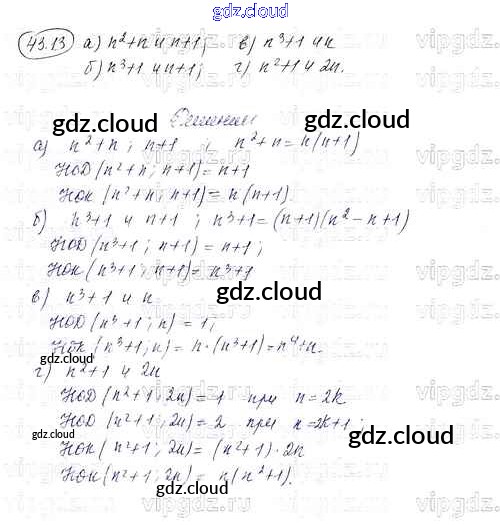 gdz.cloud
43.13 а) n²+n и n+1; в) n³+1 и n
б) n³+1 и n+1; г) n²+1 и 2n.
gdz.cloud
Решение
а) n²+n ; n+1 ; n²+n = n(n+1)
НОД (n²+n; n+1) = n+1
НОК (n²+n; n+1) = n(n+1).
б) n³+1 и n+1 ; n³+1 = (n+1)(n²-n+1)
НОД (n³+1; n+1) = n+1;
НОК (n³+1; n+1) = n³+1
в) n³+1 и n
gdz.cloud
НОД (n³+1; n) = 1;
НОК (n³+1; n) = n·(n³+1) = n⁴+n.
gdz.cloud
gdz.cloud
г) n²+1 и 2n
НОД (n²+1; 2n) = 1 при n=2k
НОД (n²+1; 2n) = 2 при n=2k+1;
gdz.cloud
gdz.cloud
НОК (n²+1; 2n) = (n²+1)·2n
НОК (n²+1; 2n) = n(n²+1).
gdz.cloud
gdz.cloud